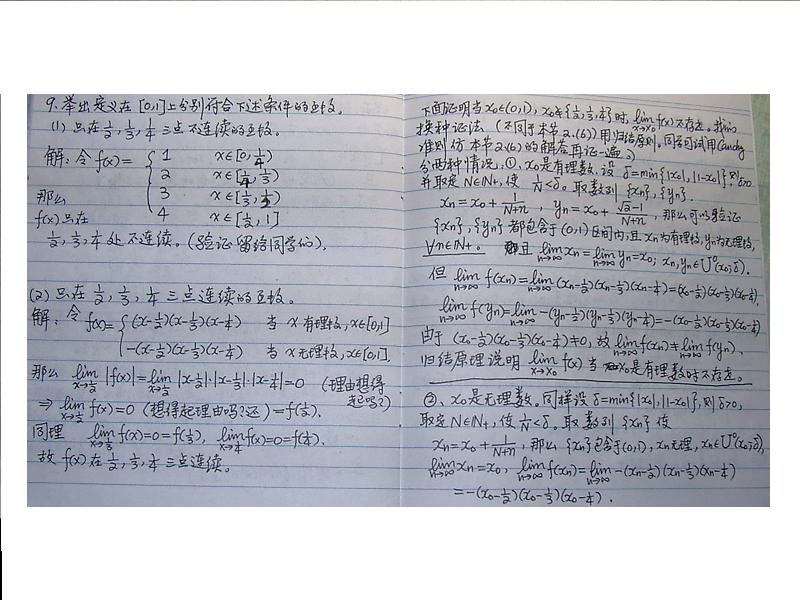 9.举出定义在[0,1]上分别符合下述条件的函数。
(1) 只在½,⅓,¼三点不连续的函数。
解:令f(x)= { 1 x∈[0,¼)
2 x∈[¼,⅓)
3 x∈[⅓,½)
4 x∈[½,1]
那么
f(x)只在
½,⅓,¼处不连续。(验证留给同学们).
(2) 只在½,⅓,¼三点连续的函数。
解:令 f(x)= { (x-½)(x-⅓)(x-¼) 当x有理数,x∈[0,1]
-(x-½)(x-⅓)(x-¼) 当x无理数,x∈[0,1].
那么 lim x→½ |f(x)|=lim x→½ |x-½|·|x-⅓|·|x-¼|=0 (理由想得起吗?)
⇒ lim x→½ f(x)=0 (想得起理由吗?还)=f(½).
同理 lim x→⅓ f(x)=0=f(⅓), lim x→¼ f(x)=0=f(¼).
故f(x)在½,⅓,¼三点连续。
下面证明当x₀∈(0,1), x₀∉{½,⅓,¼}时, lim x→x₀ f(x)不存在。我们
换种证法(不同于本节2.(6))用归结原则。同学可试用Cauchy
准则仿本节2.(6)的解答再证一遍。)
分两种情况:①、x₀是有理数.设δ=min{|x₀|,|1-x₀|},则δ>0
并取定N∈N₊,使 1/N<δ。取数列{xn},{yn}.
xn=x₀+1/(N+n), yn=x₀+(√2-1)/(N+n),那么可以验证
{xn},{yn}都包含于(0,1)区间内,且xn为有理数,yn为无理数,
∀n∈N₊。 且 lim n→∞ xn=lim n→∞ yn=x₀; xn,yn∈U⁰(x₀;δ).
但 lim n→∞ f(xn)=lim n→∞ (xn-½)(xn-⅓)(xn-¼)=(x₀-½)(x₀-⅓)(x₀-¼),
lim n→∞ f(yn)=lim n→∞ -(yn-½)(yn-⅓)(yn-¼)=-(x₀-½)(x₀-⅓)(x₀-¼)
由于 (x₀-½)(x₀-⅓)(x₀-¼)≠0,故 lim n→∞ f(xn)≠lim n→∞ f(yn)、
归结原理说明 lim x→x₀ f(x)当x₀是有理数时不存在。
②、x₀是无理数。同样设δ=min{|x₀|,|1-x₀|},则δ>0,
取定N∈N₊,使 1/N<δ。取数列{xn}使
xn=x₀+1/(N+n),那么{xn}包含于(0,1),xn无理,xn∈U⁰(x₀;δ),
lim n→∞ xn=x₀, lim n→∞ f(xn)=lim n→∞ -(xn-½)(xn-⅓)(xn-¼)
=-(x₀-½)(x₀-⅓)(x₀-¼).